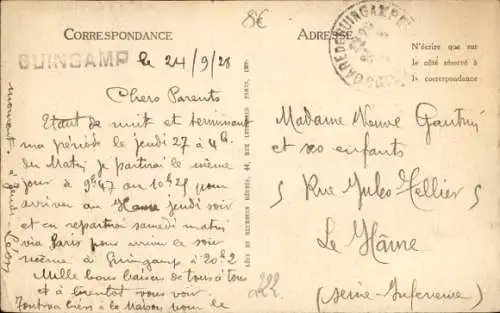 8€
CORRESPONDANCE
ADRESSE
GUINGAMP
le 24/9/28
GARE DE GUINGAMP
N'écrire que sur
le côté réservé à
la correspondance
Chers Parents
Etant de nuit et terminant
ma période le jeudi 27 à 4h
du Matin je partirai le même
jour à 9h47 ou 10h25 pour
arriver au Havre jeudi soir
et en repartirai samedi matin
via Paris pour arriver le soir
même à Guingamp à 20h2
Mille bons baisers de tous à tous
et à bientôt vous voir
Tout va bien à la maison pour le
moment à jeudi Léon
LÉVY ET NEURDEIN RÉUNIS, 44, RUE LETELLIER, PARIS, IMP.
Madame Veuve
et ses enfants
5 Rue Jules Tellier 5
Le Hâvre
(Seine Inférieure)
222